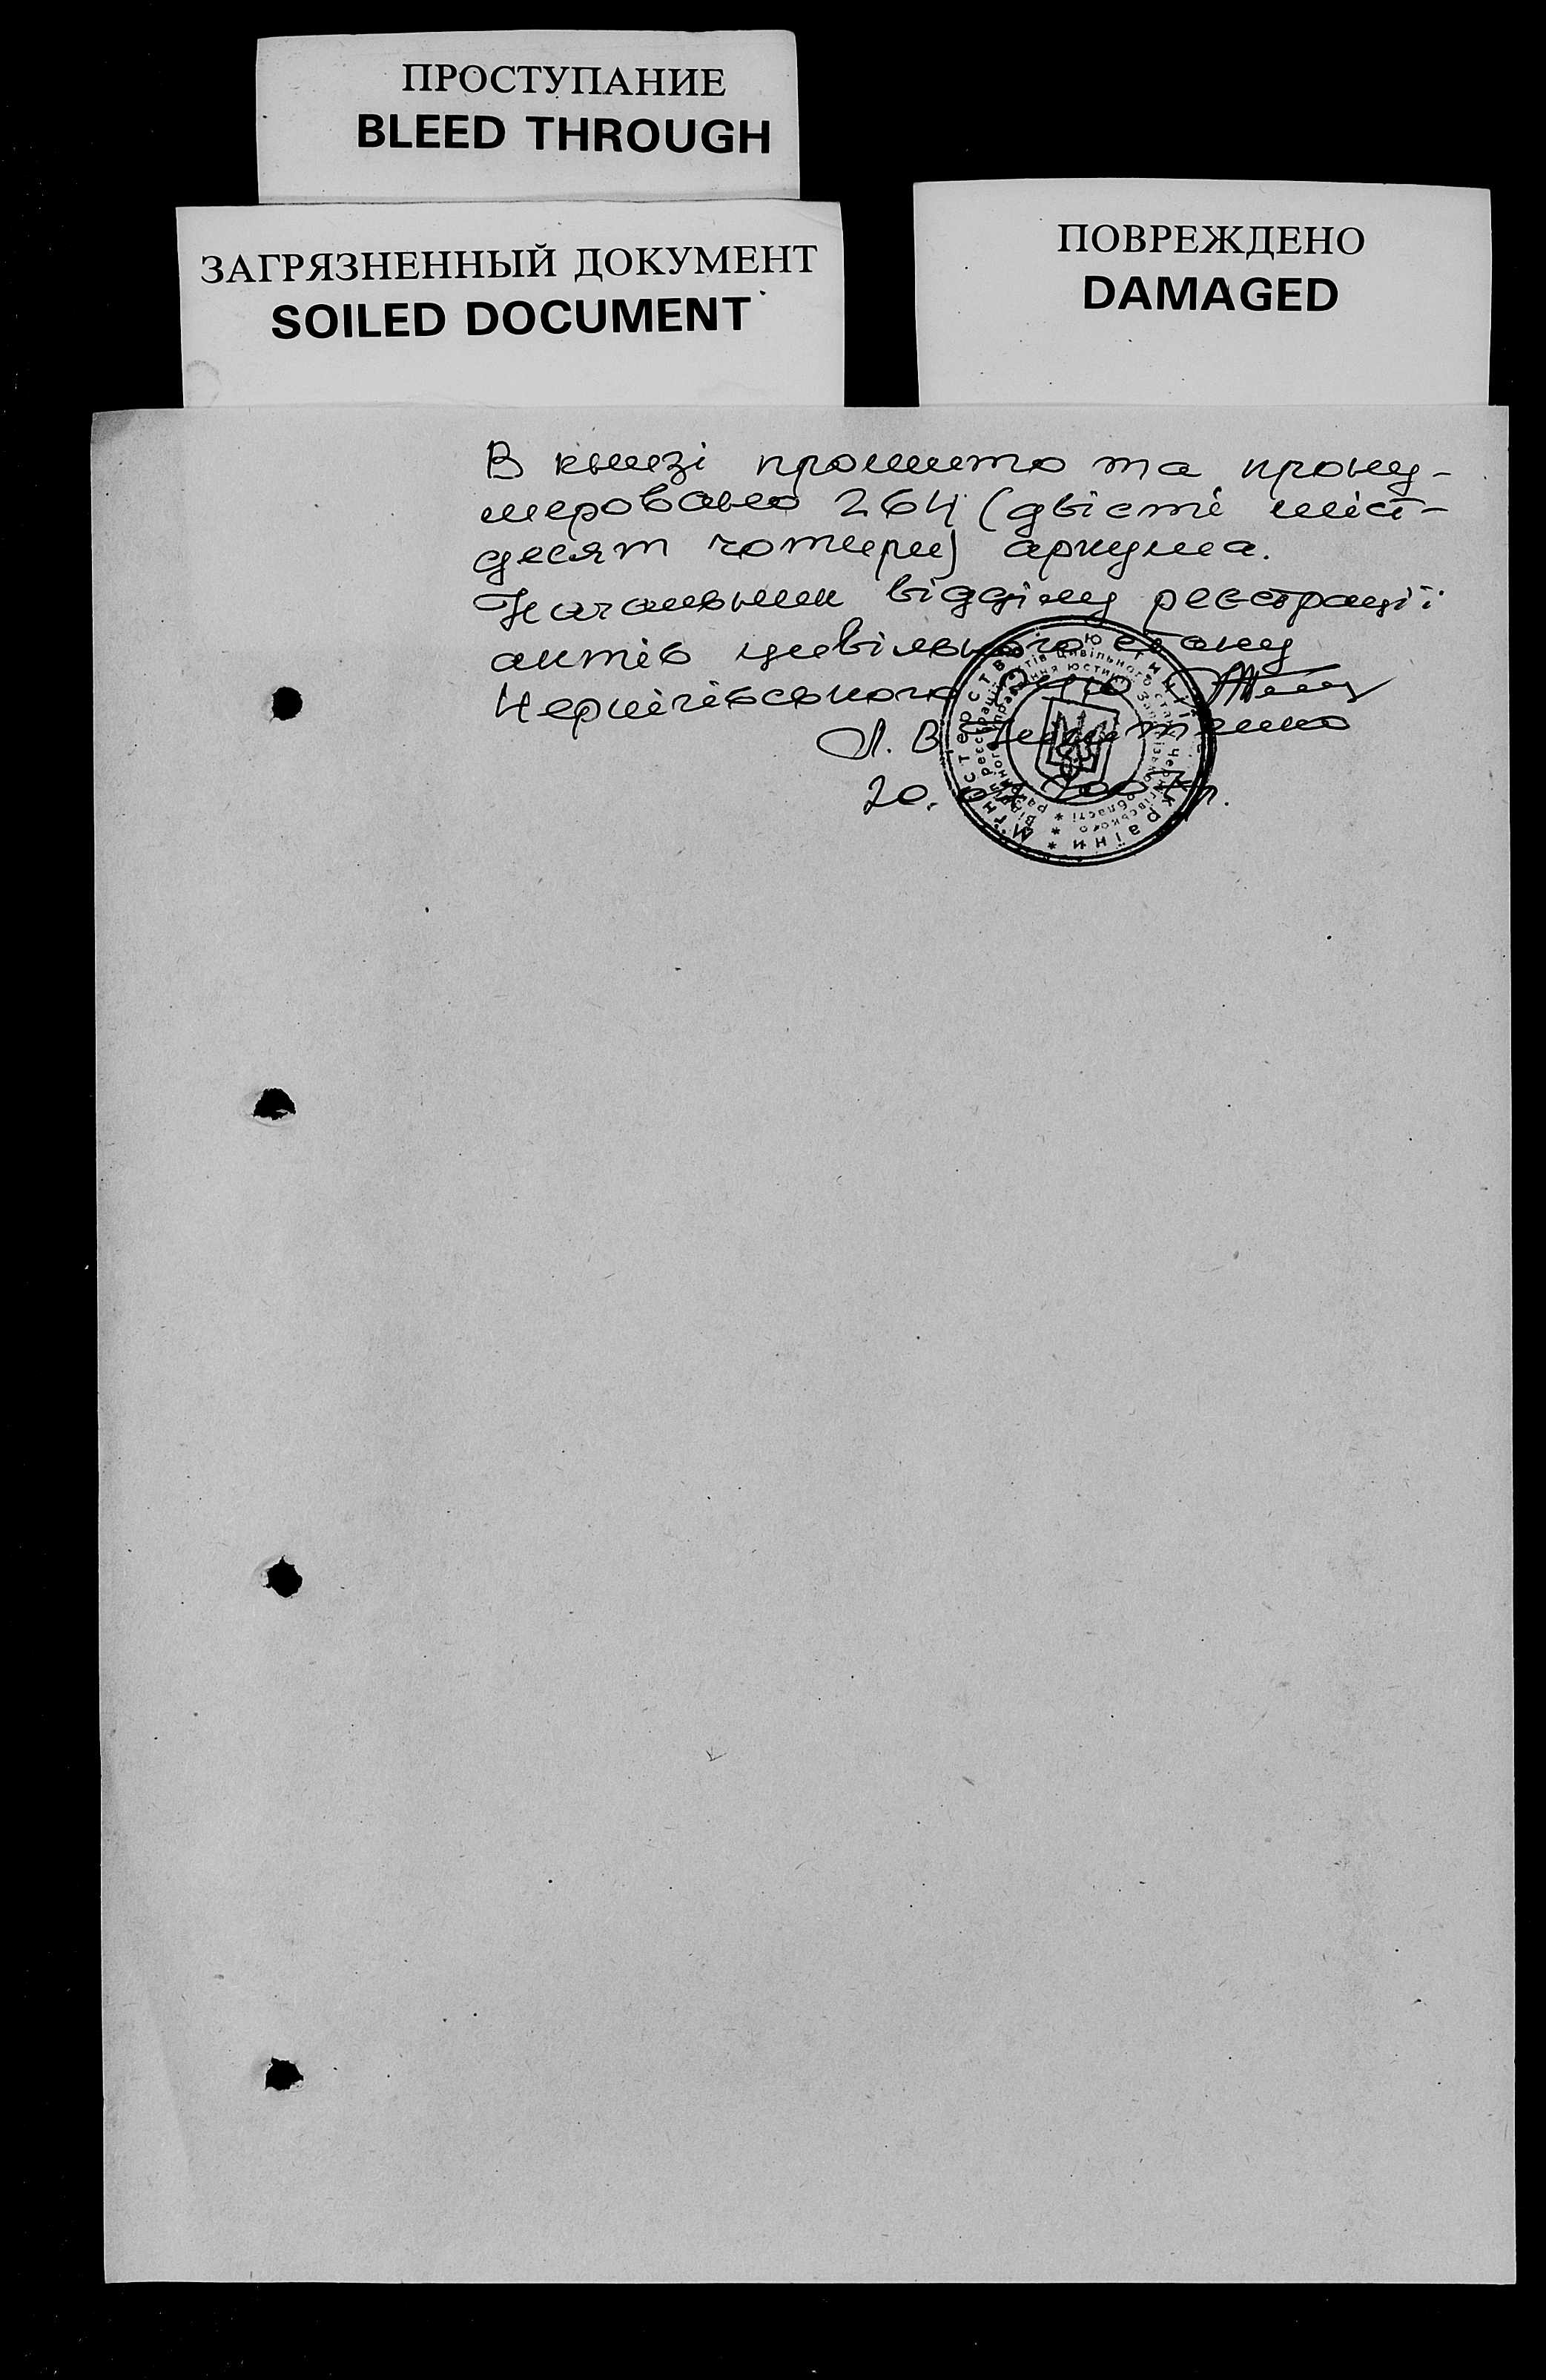 ПРОСТУПАНИЕ
BLEED THROUGH
ЗАГРЯЗНЕННЫЙ ДОКУМЕНТ
SOILED DOCUMENT
ПОВРЕЖДЕНО
DAMAGED
В книзі прошито та прону-
меровано 264 (двісті шіст-
десят чотири) аркуша.
Начальник відділу реєстрації
актів цивільного стану
Чернігівського РУЮ
Л. В.
20. 2007 р.
Міністерство Юстиції України
Відділ реєстрації актів цивільного стану Чернігівського
районного управління юстиції Запорізької області